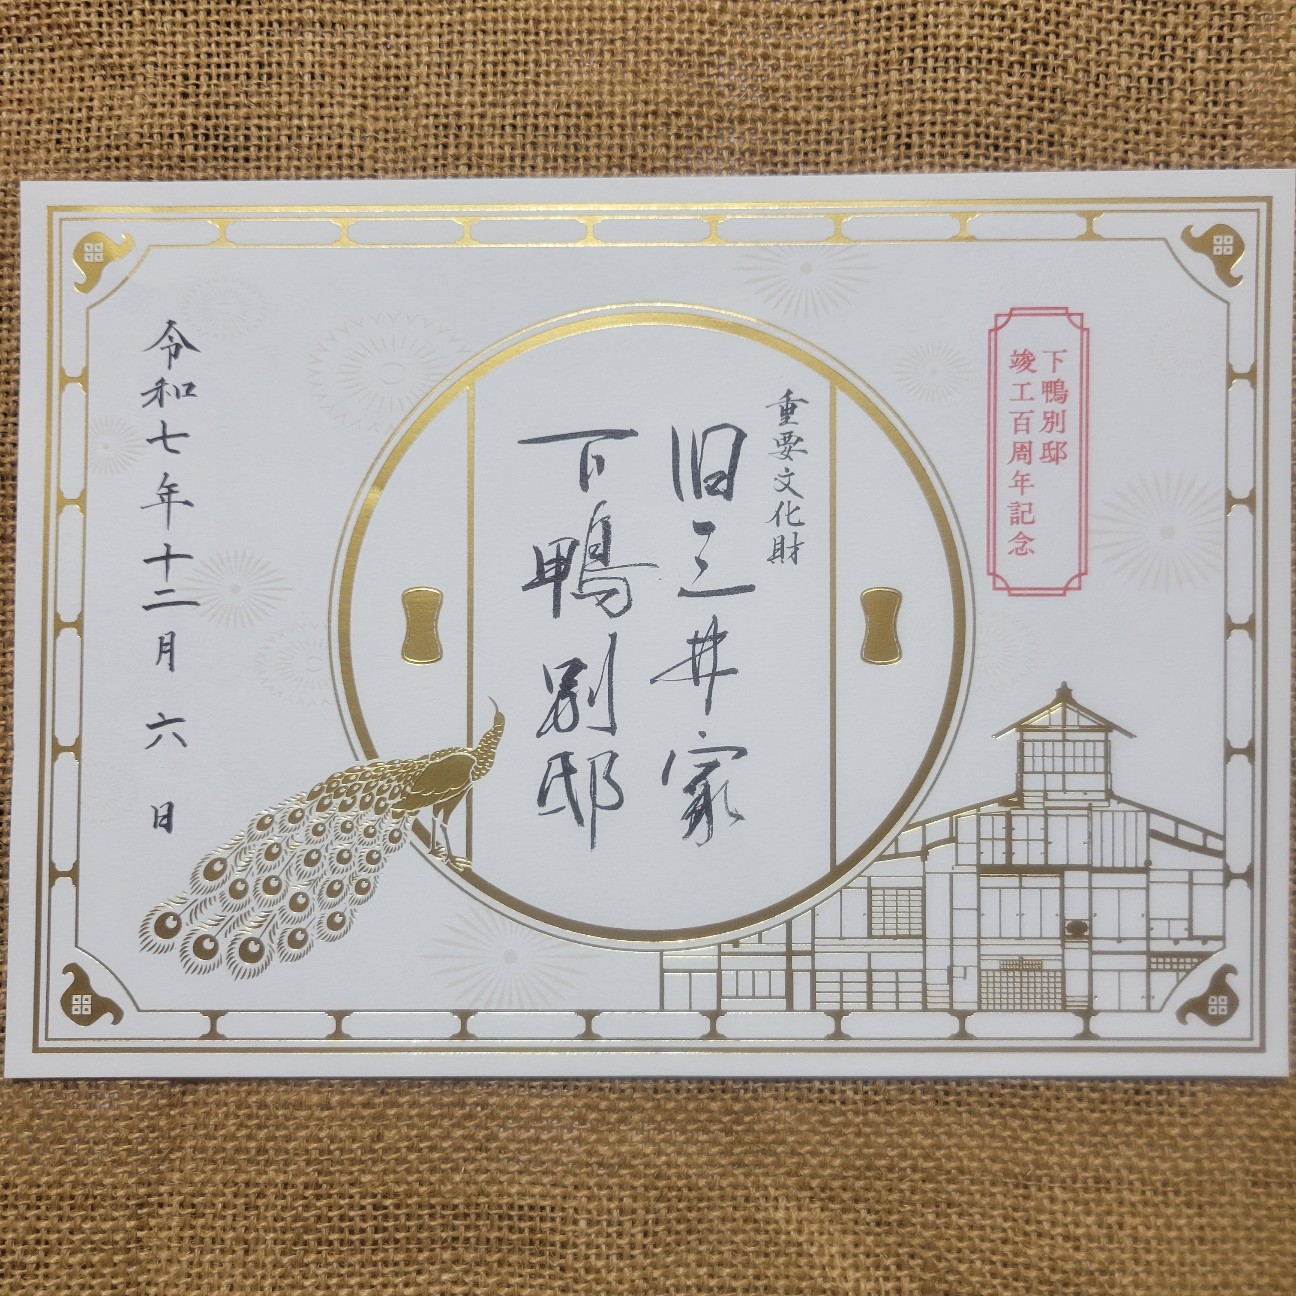 下鴨別邸
竣工百周年記念
重要文化財
旧三井家
下鴨別邸
令和七年十二月六日